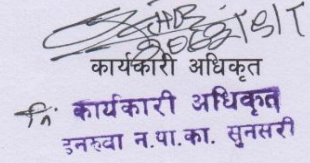 कार्यकारी अधिकृत
नि. कार्यकारी अधिकृत
इनरुवा न.पा.का. सुनसरी